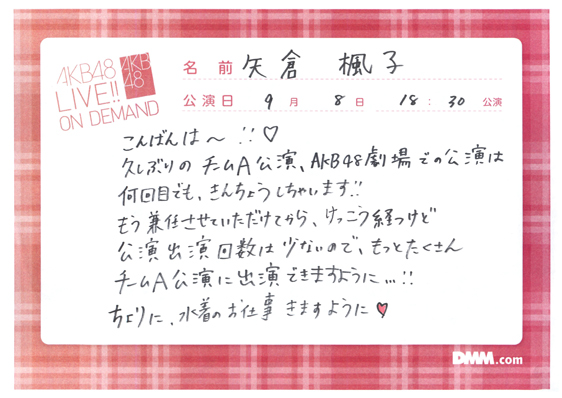 AKB48
LIVE!!
ON DEMAND
AKB
48
名前 矢倉 楓子
公演日 9月 8日 18:30 公演
こんばんは〜!!♡
久しぶりのチームA公演、AKB48劇場での公演は
何回目でも、きんちょうしちゃいます!!
もう兼任させていただけてから、けっこう経つけど
公演出演回数は少ないので、もっとたくさん
チームA公演に出演できますように…!!
ちょりに、水着のお仕事きますように♥
DMM.com